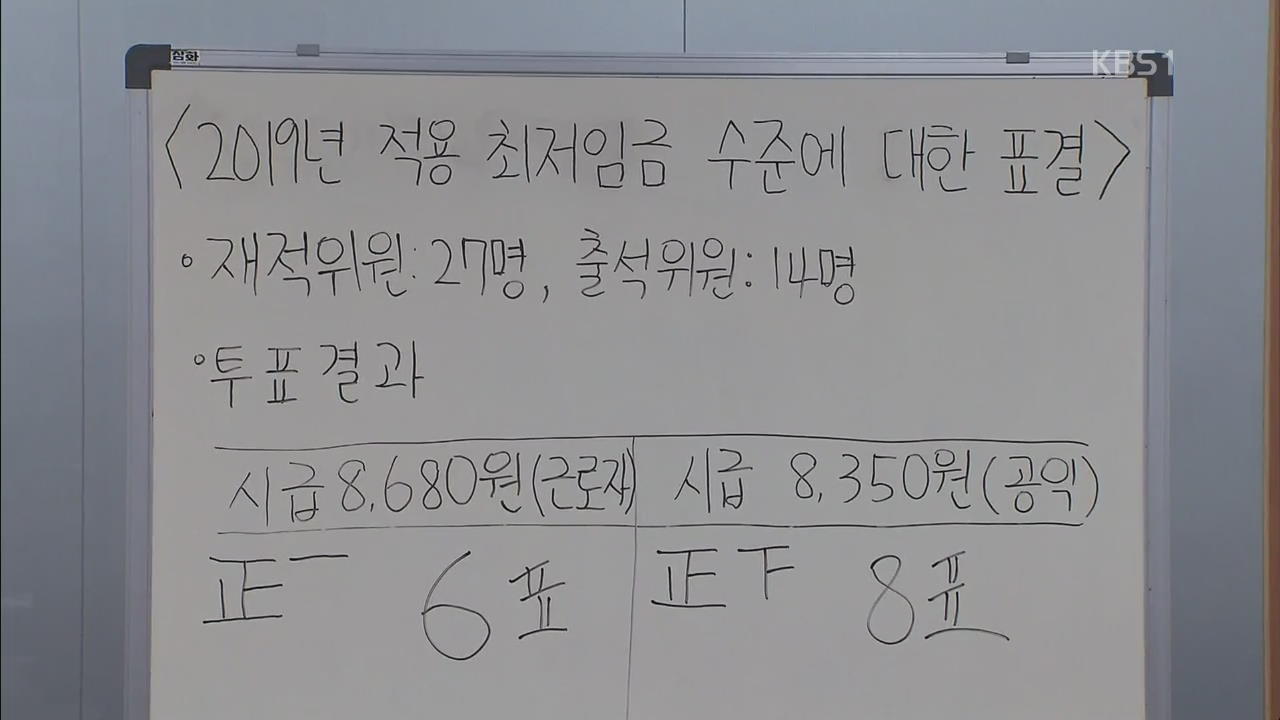 심화
KBS1
<2019년 적용 최저임금 수준에 대한 표결>
• 재적위원: 27명, 출석위원: 14명
• 투표결과
시급 8,680원(근로자) 시급 8,350원(공익)
正一 6표 正下 8표